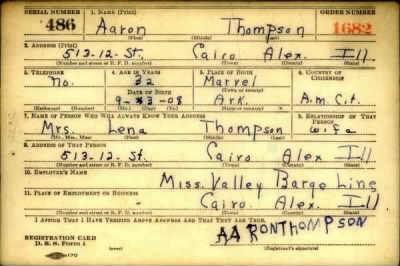 SERIAL NUMBER 1. NAME (Print) ORDER NUMBER
486 Aaron Thompson 1682
(First) (Middle) (Last)
2. ADDRESS (Print)
513-12-St. Cairo Alex. Ill
(Number and street or R. F. D. number) (Town) (County) (State)
3. TELEPHONE 4. AGE IN YEARS 5. PLACE OF BIRTH 6. COUNTRY OF CITIZENSHIP
No. 32 Marvel
DATE OF BIRTH (Town or county)
9-3-08 Ark. Am. Cit.
(Exchange) (Number) (Mo.) (Day) (Yr.) (State or country)
7. NAME OF PERSON WHO WILL ALWAYS KNOW YOUR ADDRESS 8. RELATIONSHIP OF THAT PERSON
Mrs. Lena Thompson wife
(Mr., Mrs., Miss) (First) (Middle) (Last)
9. ADDRESS OF THAT PERSON
513-12-St. Cairo Alex Ill
(Number and street or R. F. D. number) (Town) (County) (State)
10. EMPLOYER'S NAME
Miss. Valley Barge Line
11. PLACE OF EMPLOYMENT OR BUSINESS
Cairo. Alex. Ill
(Number and street or R. F. D. number) (Town) (County) (State)
I AFFIRM THAT I HAVE VERIFIED ABOVE ANSWERS AND THAT THEY ARE TRUE.
AARONTHOMPSON
REGISTRATION CARD
D. S. S. Form 1 (Registrant's signature)